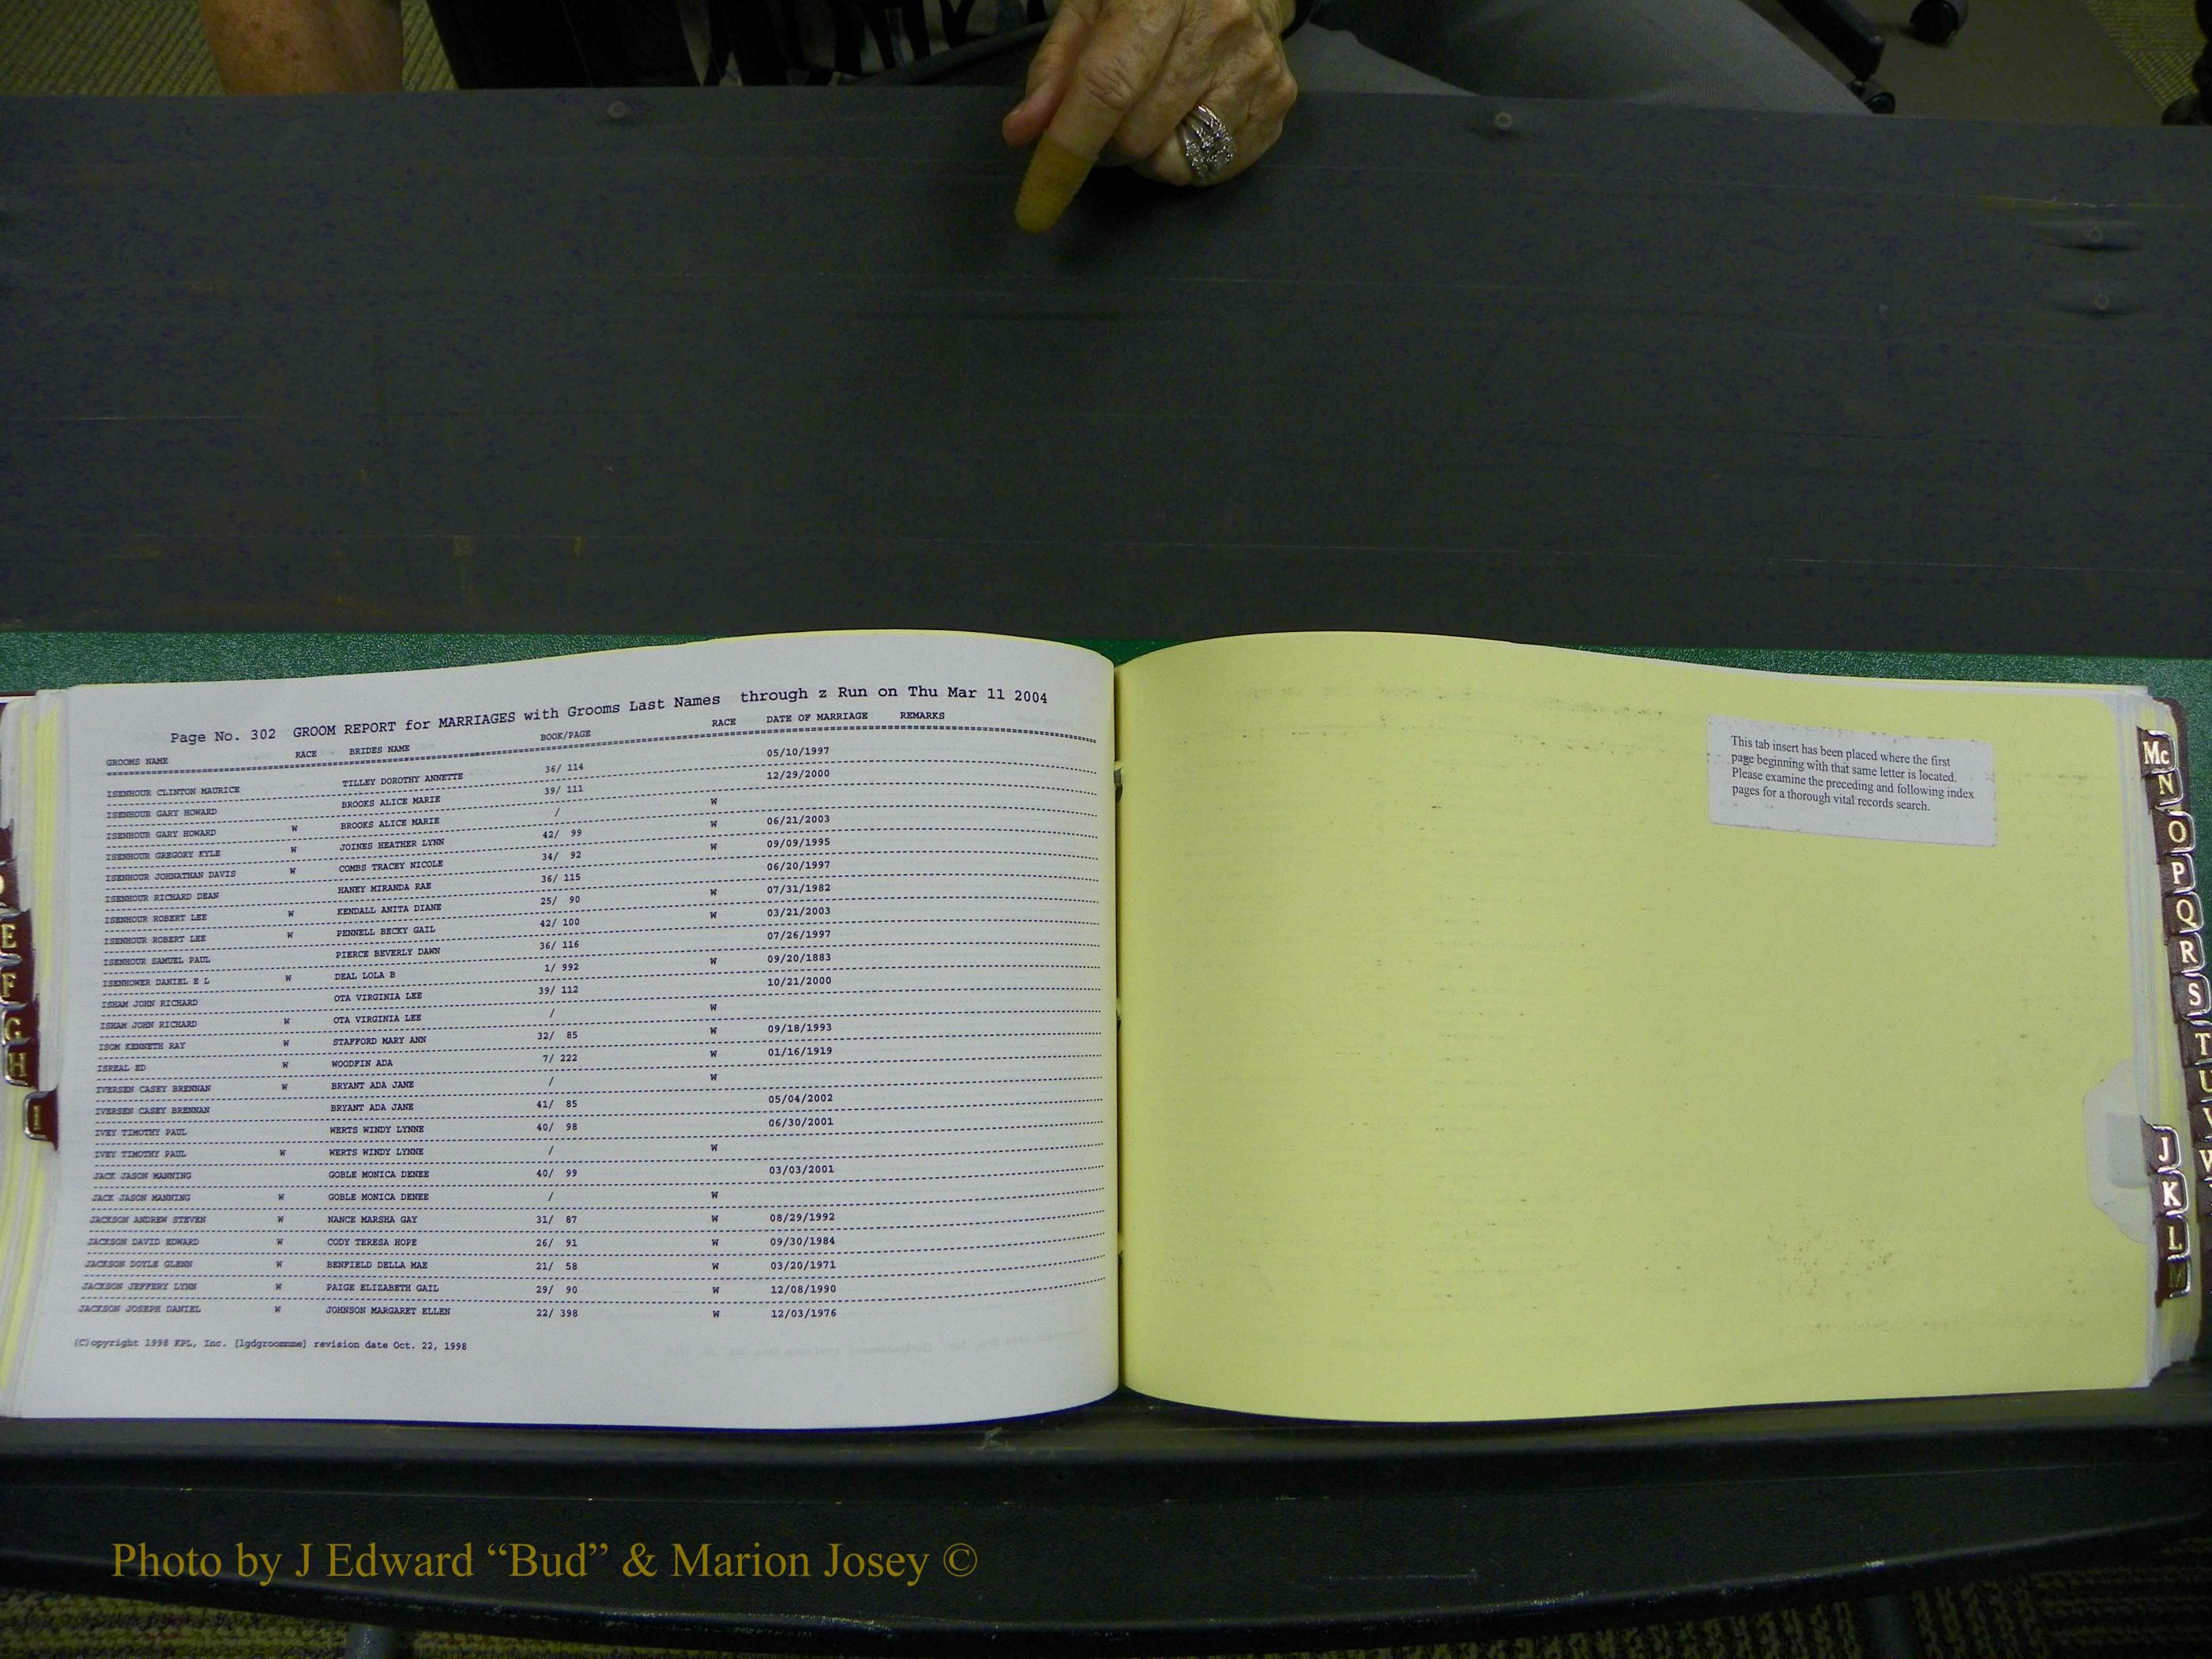 Page No. 302 GROOM REPORT for MARRIAGES with Grooms Last Names through z Run on Thu Mar 11 2004
GROOMS NAME RACE BRIDES NAME BOOK/PAGE RACE DATE OF MARRIAGE REMARKS
ISENHOUR CLINTON MAURICE TILLEY DOROTHY ANNETTE 36/ 114 05/10/1997
ISENHOUR GARY HOWARD BROOKS ALICE MARIE 39/ 111 12/29/2000
ISENHOUR GARY HOWARD W BROOKS ALICE MARIE / W
ISENHOUR GREGORY KYLE W JOINES HEATHER LYNN 42/ 99 W 06/21/2003
ISENHOUR JOHNATHAN DAVIS W COMBS TRACEY NICOLE 34/ 92 W 09/09/1995
ISENHOUR RICHARD DEAN HANEY MIRANDA RAE 36/ 115 06/20/1997
ISENHOUR ROBERT LEE W KENDALL ANITA DIANE 25/ 90 W 07/31/1982
ISENHOUR ROBERT LEE W PENNELL BECKY GAIL 42/ 100 W 03/21/2003
ISENHOUR SAMUEL PAUL PIERCE BEVERLY DAWN 36/ 116 07/26/1997
ISENHOWER DANIEL E L W DEAL LOLA B 1/ 992 W 09/20/1883
ISHAM JOHN RICHARD OTA VIRGINIA LEE 39/ 112 10/21/2000
ISHAM JOHN RICHARD W OTA VIRGINIA LEE / W
ISOM KENNETH RAY W STAFFORD MARY ANN 32/ 85 W 09/18/1993
ISREAL ED W WOODFIN ADA 7/ 222 W 01/16/1919
IVERSEN CASEY BRENNAN W BRYANT ADA JANE / W
IVERSEN CASEY BRENNAN BRYANT ADA JANE 41/ 85 05/04/2002
IVEY TIMOTHY PAUL WERTS WINDY LYNNE 40/ 98 06/30/2001
IVEY TIMOTHY PAUL W WERTS WINDY LYNNE / W
JACK JASON MANNING GOBLE MONICA DENEE 40/ 99 03/03/2001
JACK JASON MANNING W GOBLE MONICA DENEE / W
JACKSON ANDREW STEVEN W NANCE MARSHA GAY 31/ 87 W 08/29/1992
JACKSON DAVID EDWARD W CODY TERESA HOPE 26/ 91 W 09/30/1984
JACKSON DOYLE GLENN W BENFIELD DELLA MAE 21/ 58 W 03/20/1971
JACKSON JEFFERY LYNN W PAIGE ELIZABETH GAIL 29/ 90 W 12/08/1990
JACKSON JOSEPH DANIEL W JOHNSON MARGARET ELLEN 22/ 398 W 12/03/1976
(C)opyright 1998 KPL, Inc. [lgdgroomnme] revision date Oct. 22, 1998
E
F
G
H
I
This tab insert has been placed where the first
page beginning with that same letter is located.
Please examine the preceding and following index
pages for a thorough vital records search.
Mc
N
O
P
Q
R
S
T
U
V
W
J
K
L
M
Photo by J Edward “Bud” & Marion Josey ©